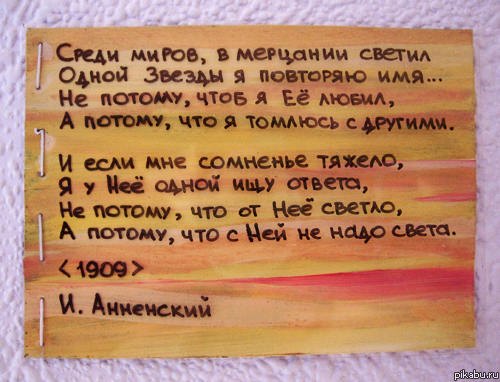 Среди миров, в мерцании светил
Одной Звезды я повторяю имя...
Не потому, чтоб я Её любил,
А потому, что я томлюсь с другими.
И если мне сомненье тяжело,
Я у Неё одной ищу ответа,
Не потому, что от Неё светло,
А потому, что с Ней не надо света.
<1909>
И. Анненский
pikabu.ru